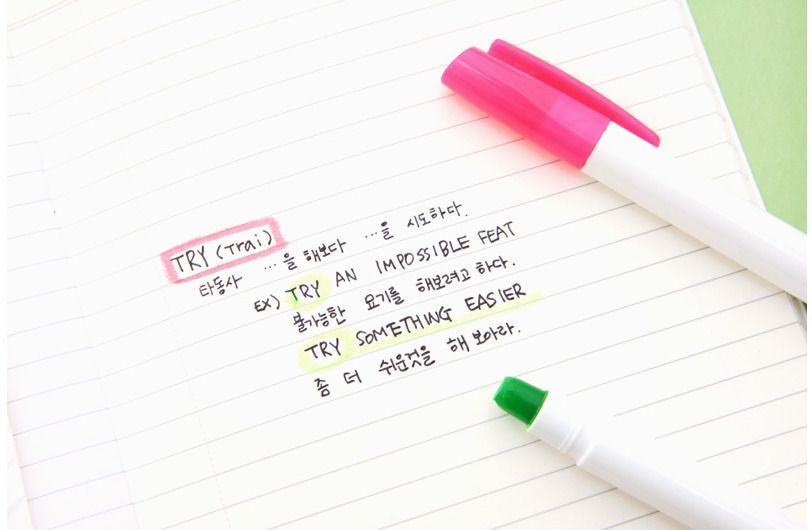 TRY (Trai)
타동사 ...을 해보다 ...을 시도하다.
EX) TRY AN IMPOSSIBLE FEAT
불가능한 묘기를 해보려고 하다.
TRY SOMETHING EASIER
좀 더 쉬운것을 해 보아라.